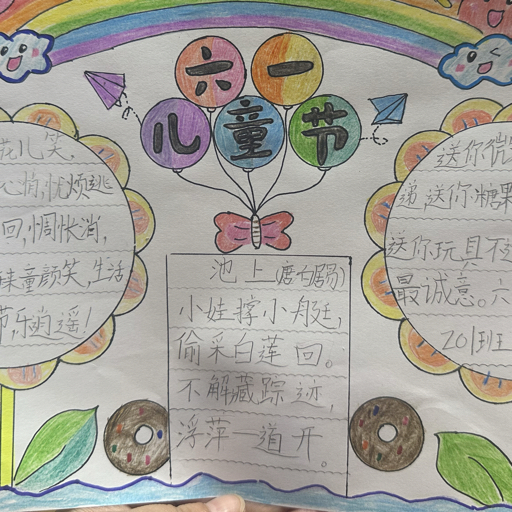 六一
儿童节
花儿笑,
心消,忧烦逃
回,惆怅消,
童颜笑,生活
节乐逍遥!
池上(唐白居易)
小娃撑小艇,
偷采白莲回。
不解藏踪迹,
浮萍一道开。
送你微
递,送你糖果
送你玩具不
最诚意。六
201班王